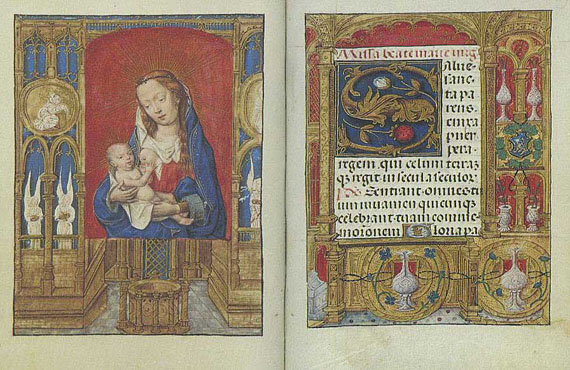 Missa beate marie virg
Salue
sanc
ta pa
rens
enixa
puer
pera
regem qui celum terraz
q regit in secula seculor
ps Sentiant omnes tu
um iuuamen quicunque
celebrant tuam comme
morationem Gloria pa